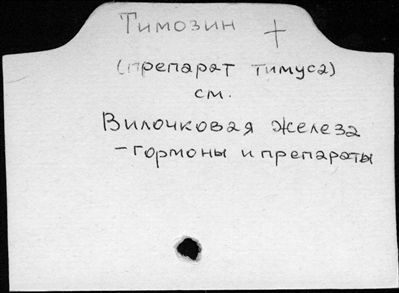 Тимозин +
(препарат тимуса)
см.
Вилочковая железа
- гормоны и препараты